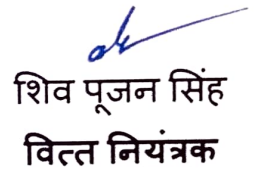 शिव पूजन सिंह
वित्त नियंत्रक